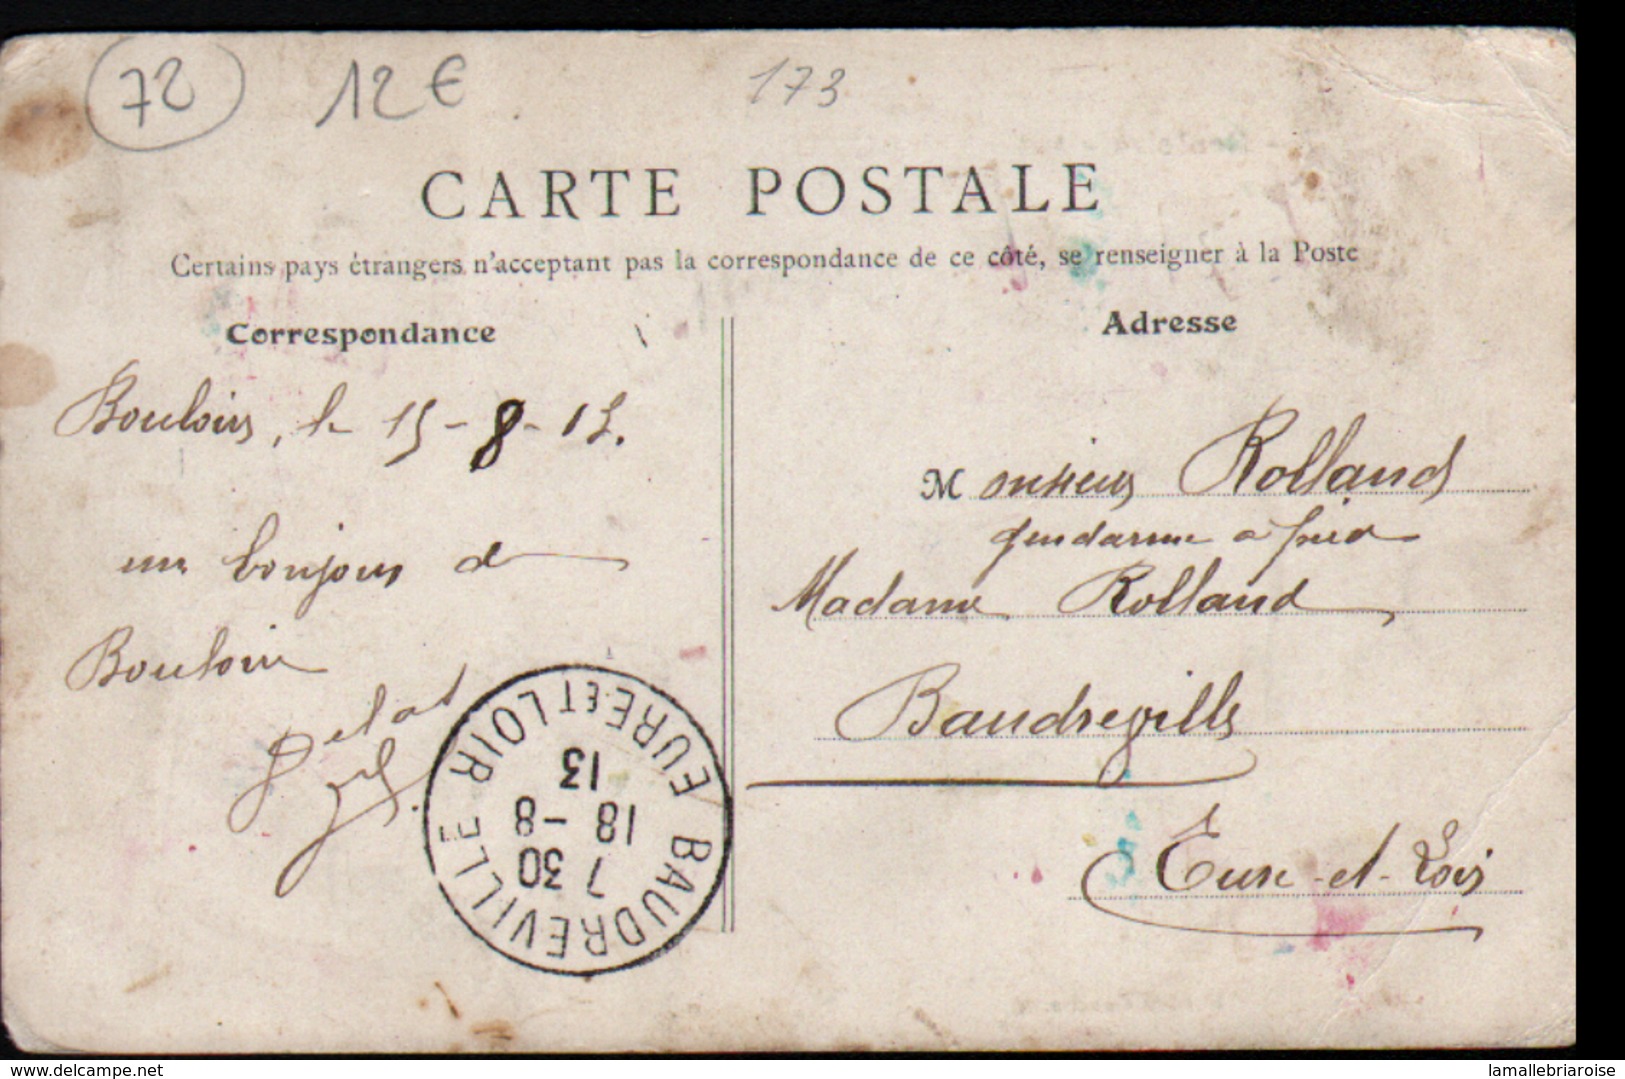 72
12€
173
CARTE POSTALE
Certains pays étrangers n'acceptant pas la correspondance de ce côté, se renseigner à la Poste
Correspondance
Bouloire, le 15-8-13.
un bonjour de
Bouloire
BAUDREVILLE
EURE ET LOIR
7 30
18 -8
13
Adresse
Monsieur Rolland
gendarme à pied
Madame Rolland
Baudreville
Eure-et-Loir
www.delcampe.net
lamallebriaroise